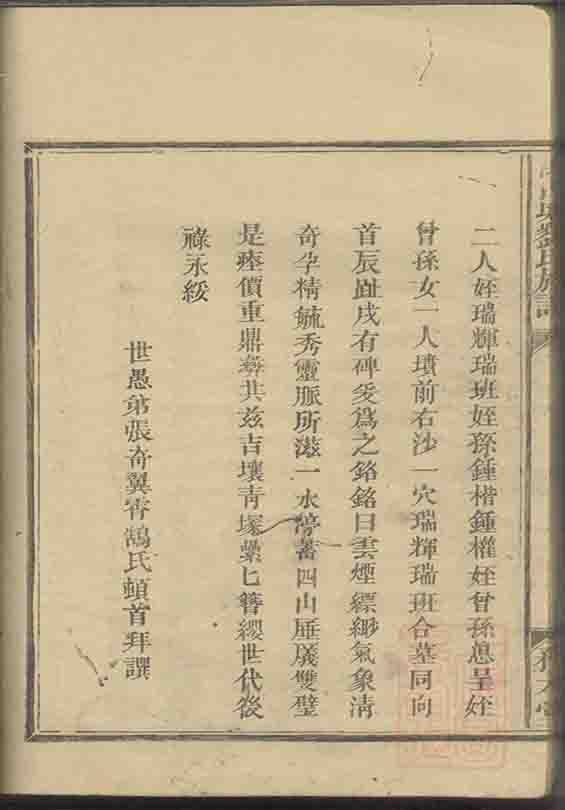 二人姪瑞輝瑞班姪孫鍾楷鍾權姪曾孫息呈姪
曾孫女一人墳前右沙一穴瑞輝瑞班合墓同向
首辰趾戌有碑爰爲之銘銘曰雲煙縹緲氣象清
奇孕精毓秀靈脈所滋一水停蓄四山厜㕒雙璧
是瘞價重鼎彝共兹吉壤靑塚纍匕簪纓世代後
祿永綏
世愚弟張奇翼霄鵠氏頓首拜譔
氏族譜